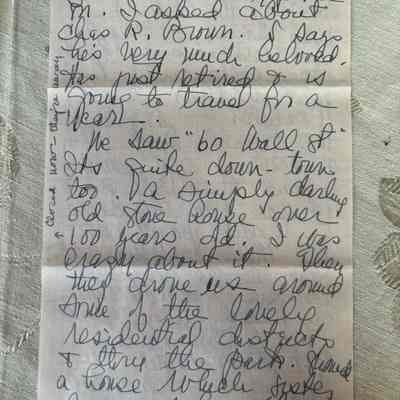 m. I asked about
Chas R. Brown. I says
he's very much beloved,
has just retired & is
going to travel for a
year.
We saw "60 Wall St"
Its quite down-town
too. A simply darling
old stone house over
100 years old. I was
crazy about it. Then
they drove us around
some of the lovely
residential districts
& thru the park. Showed
a house which
closed now-